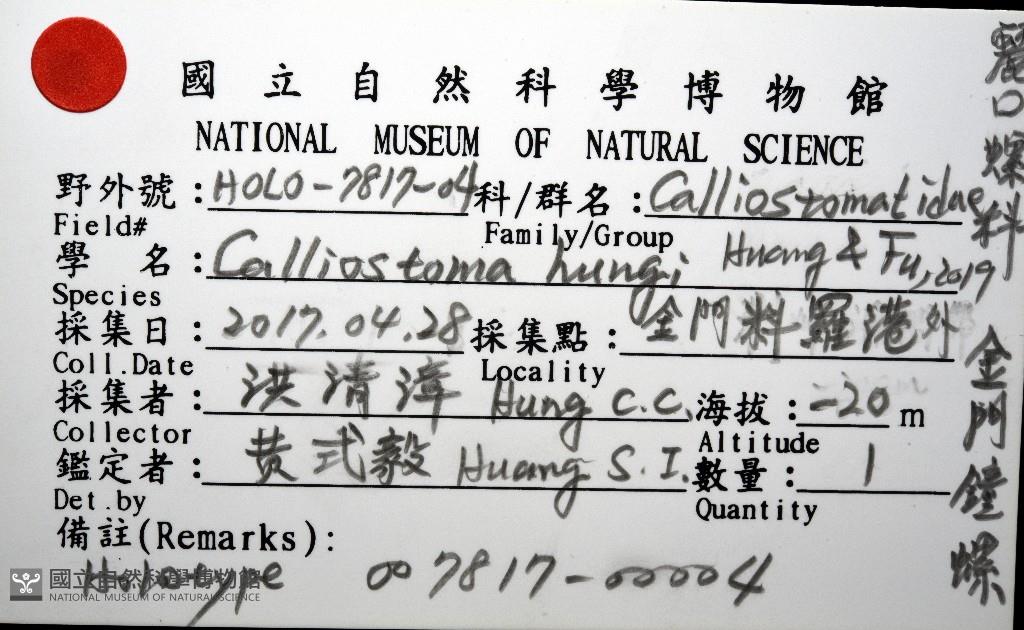 國立自然科學博物館
NATIONAL MUSEUM OF NATURAL SCIENCE
野外號：HOLO-7817-04 科/群名：Calliostomatidae
Field# Family/Group
學 名：Calliostoma hungi Huang & Fu, 2019
Species
採集日：2017.04.28 採集點：金門料羅港外
Coll.Date Locality
採集者：洪清漳 Hung C.C. 海拔：-20 m
Collector Altitude
鑑定者：黄式毅 Huang S.I. 數量：1
Det.by Quantity
備註(Remarks):
Holotype 007817-00004
麗口螺科 金門鐘螺
國立自然科學博物館
NATIONAL MUSEUM OF NATURAL SCIENCE